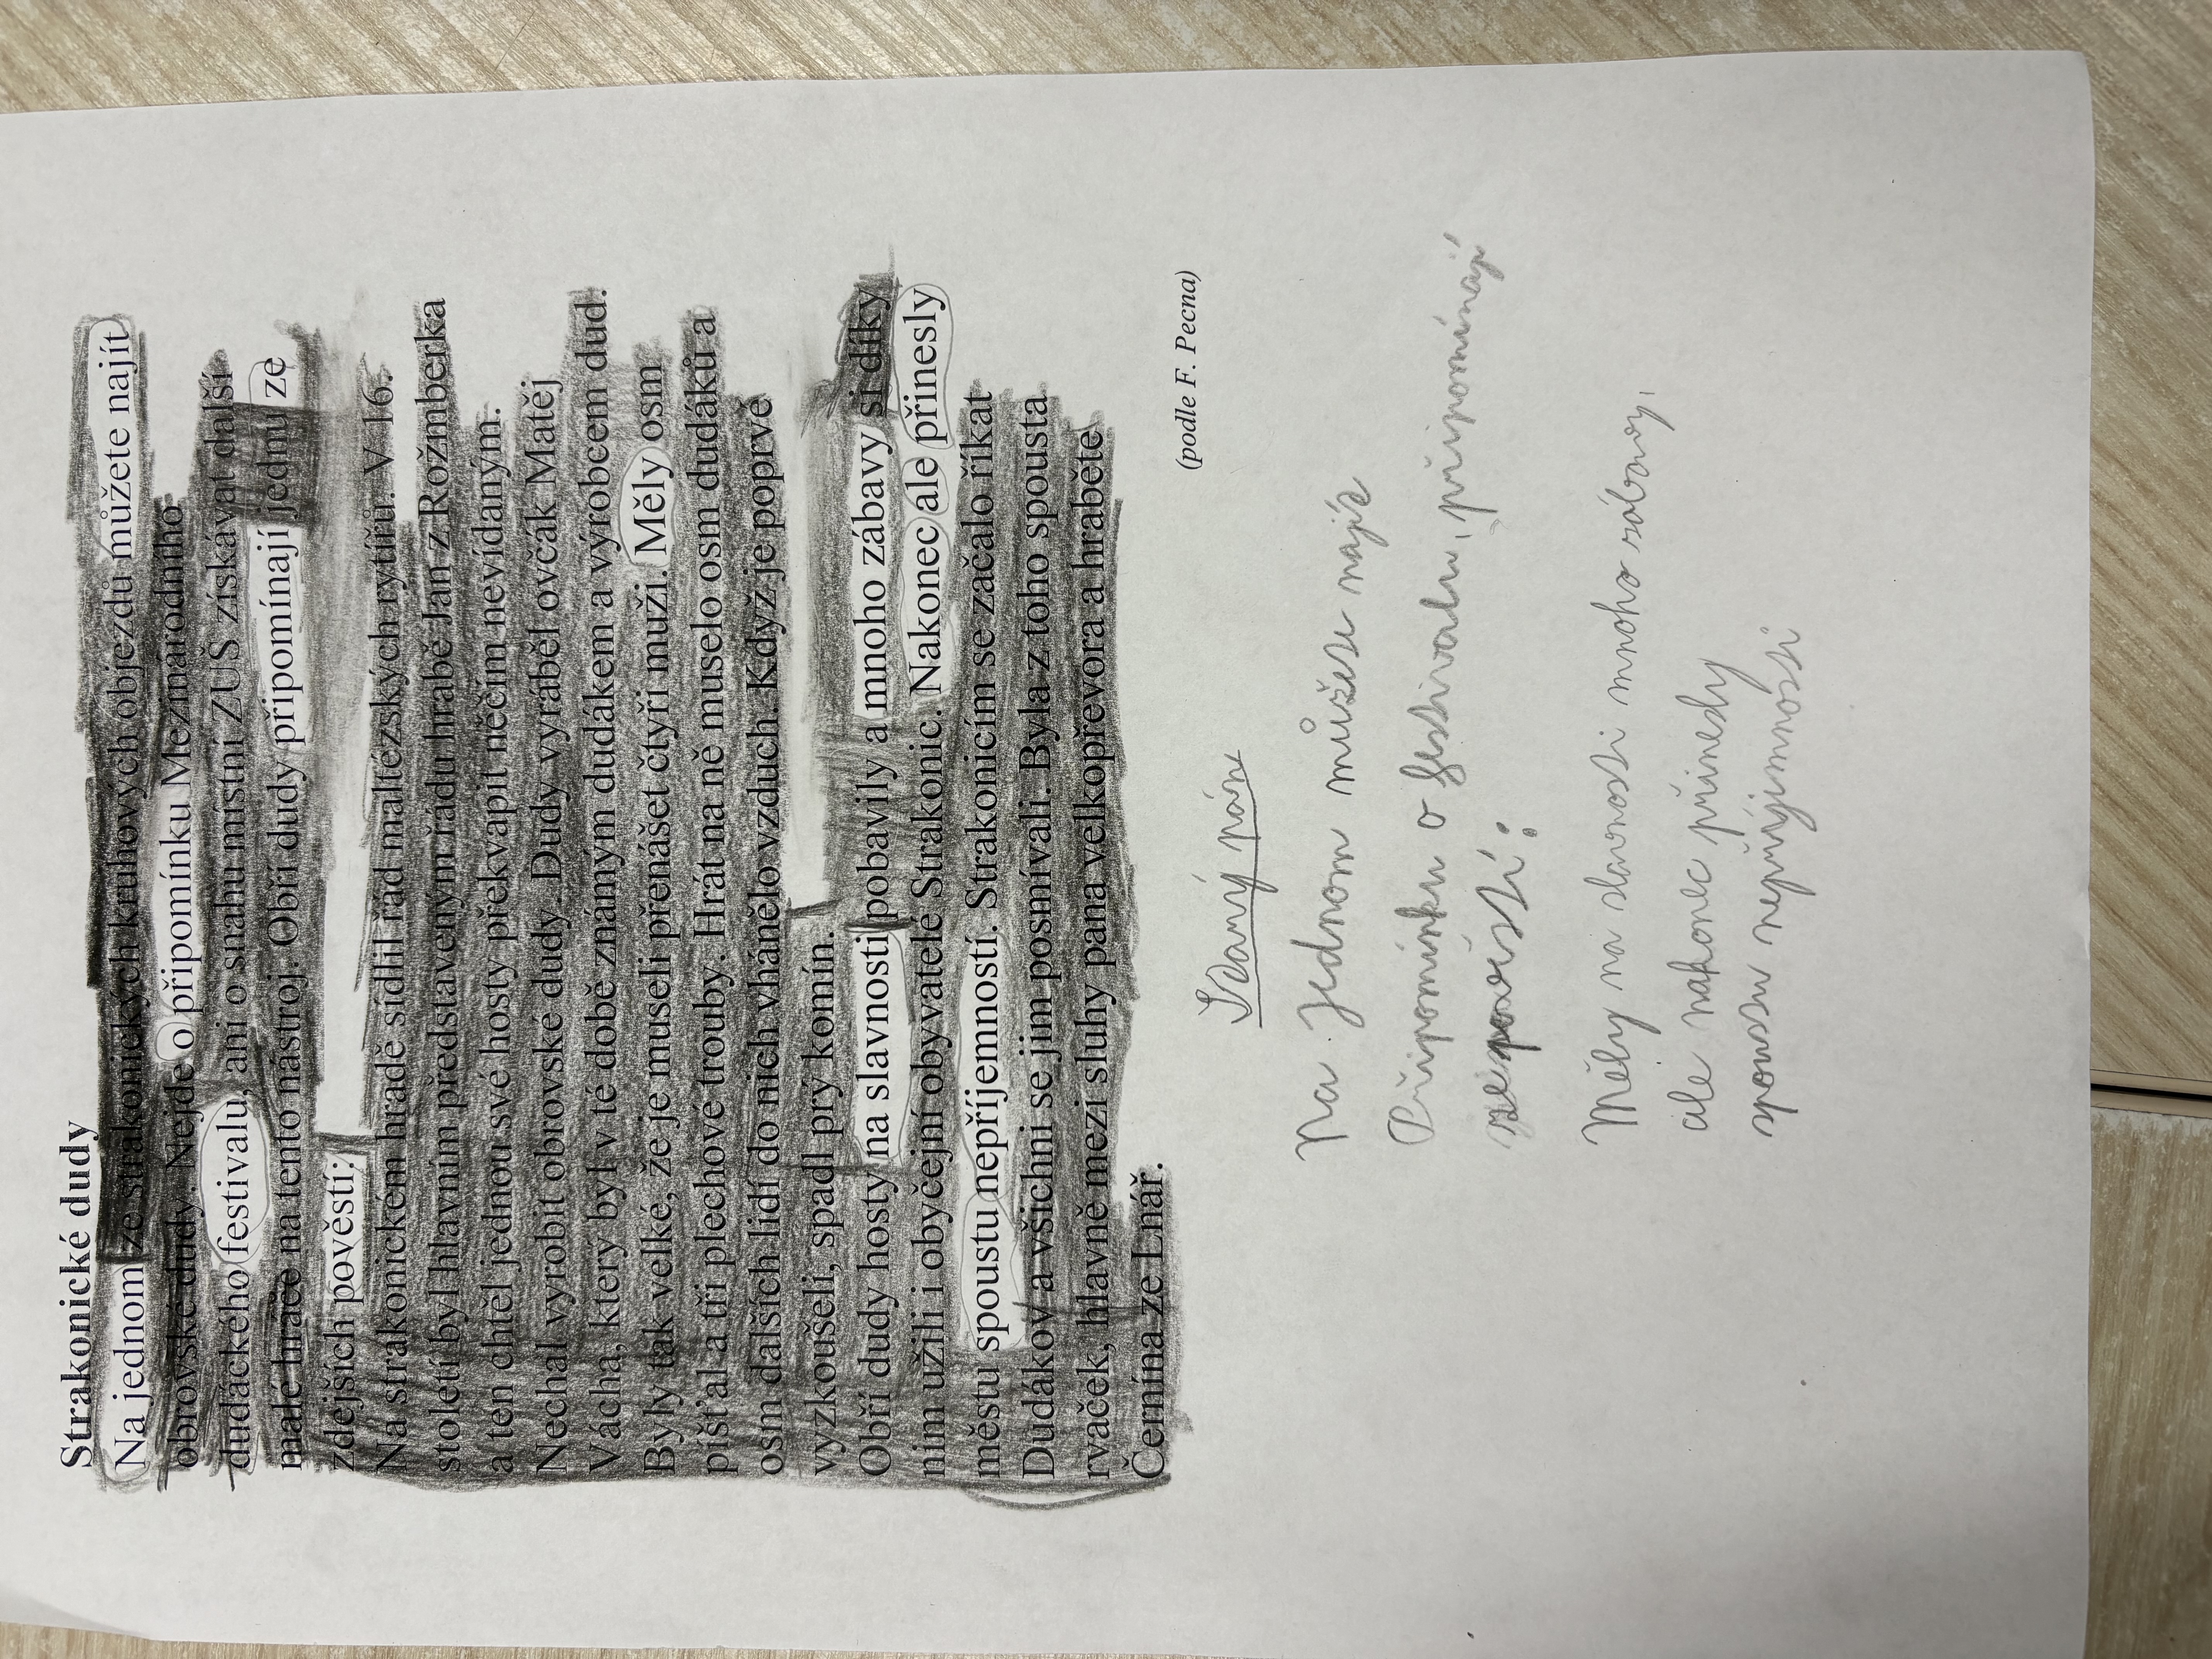 Strakonické dudy
Na jednom ze strakonických kruhových objezdů můžete najít
obrovské dudy. Nejde o připomínku Mezinárodního
dudáckého festivalu, ani o snahu místní ZUŠ získávat další
malé hráče na tento nástroj. Obří dudy připomínají jednu ze
zdejších pověstí:
Na strakonickém hradě sídlil řád maltézských rytířů. V 16.
století byl hlavním představeným řádu hrabě Jan z Rožmberka
a ten chtěl jednou své hosty překvapit něčím nevídaným.
Nechal vyrobit obrovské dudy. Dudy vyráběl ovčák Matěj
Vácha, který byl v té době známým dudákem a výrobcem dud.
Byly tak velké, že je museli přenášet čtyři muži. Měly osm
píšťal a tři plechové trouby. Hrát na ně muselo osm dudáků a
osm dalších lidí do nich vhánělo vzduch. Když je poprvé
vyzkoušeli, spadl prý komín.
Obří dudy hosty na slavnosti pobavily a mnoho zábavy si díky
nim užili i obyčejní obyvatelé Strakonic. Nakonec ale přinesly
městu spoustu nepříjemností. Strakonicím se začalo říkat
Dudákov a všichni se jim posmívali. Byla z toho spousta
rvaček, hlavně mezi sluhy pana velkopřevora a hraběte
Černína ze Lnář.
(podle F. Pecna)
Na Jednom můžese najít
Připomínku o festivalu, připomínají
ze pověstí:
Měly na slavnosti mnoho zábavy,
ale nakonec přinesly
spoustu nepříjemností